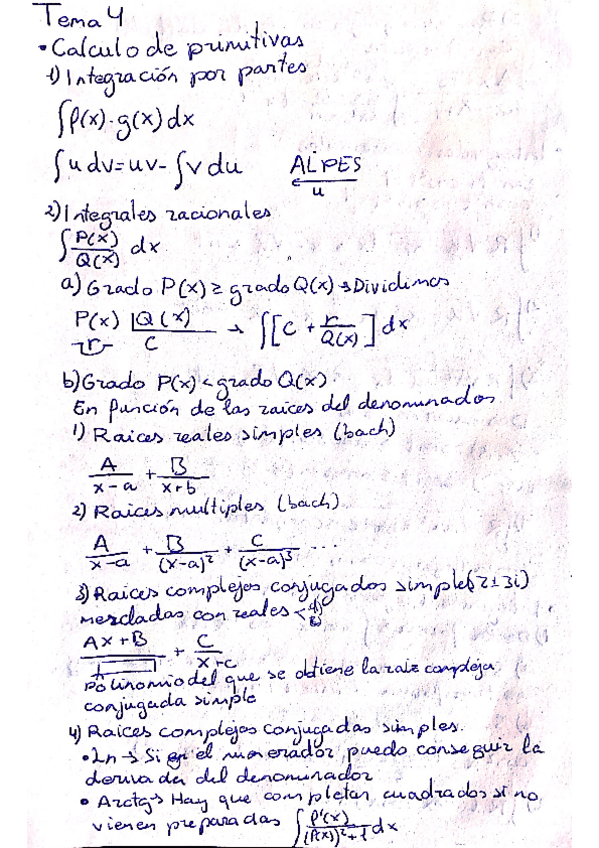 Tema 4
• Calculo de primitivas
1) Integración por partes
∫f(x)·g(x)dx
∫u dv = uv - ∫v du   ALPES
u
2) Integrales racionales
∫ P(x)/Q(x) dx
a) Grado P(x) ≥ grado Q(x) → Dividimos
P(x) |Q(x) → ∫[C + r/Q(x)] dx
r   C
b) Grado P(x) < grado Q(x).
En función de las raices del denominador
1) Raices reales simples (bach)
A/(x-a) + B/(x+b)
2) Raices multiples (bach)
A/(x-a) + B/(x-a)² + C/(x-a)³ ...
3) Raices complejas conjugados simples (2±3i)
mezcladas con reales <
(Ax+B)/ + C/(x-c)
Polinomio del que se obtiene la raiz compleja
conjugada simple
4) Raices complejas conjugadas simples.
• Ln → Si en el numerador puedo conseguir la
derivada del denominador
• Arctg → Hay que completar cuadrados si no
vienen preparadas ∫ f'(x)/((f(x))²+1) dx